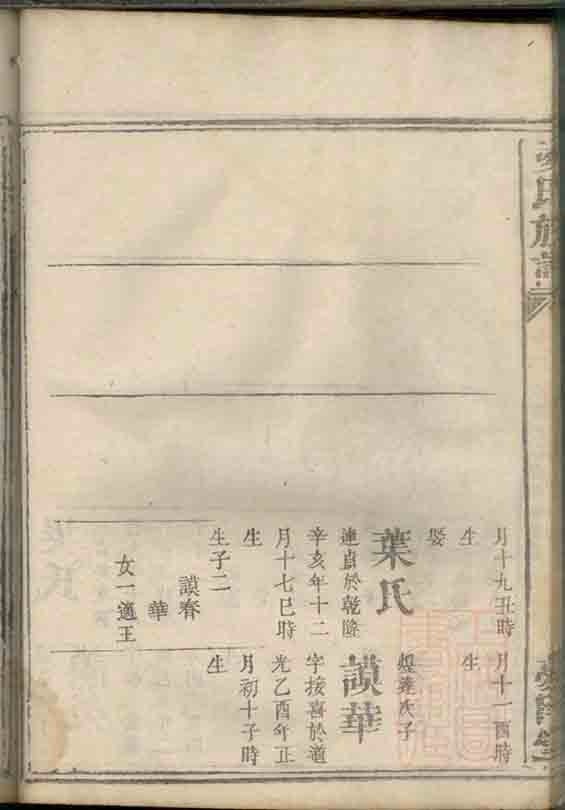 月十九丑時
生
娶
葉氏
於乾隆
辛亥年十二
月十七巳時
生
生子二
謨春
華
女一適王
月十一酉時
生
次子
謨華
字接喜於道
光乙酉年正
月初十子時
生
氏族譜